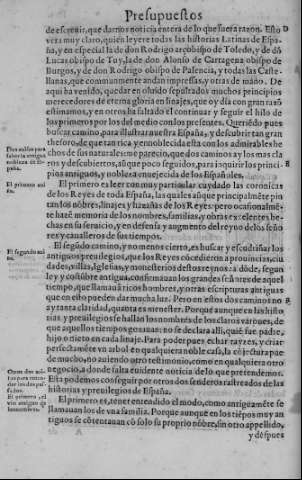 Presupuestos
de escreuir, que darnos noticia entera de lo que fuera razon. Esto
vera muy claro, quien leyere todas las historias Latinas de Espa-
ña, y en especial la de don Rodrigo arçobispo de Toledo, y de dõ
Lucas obispo de Tuy, la de don Alonso de Cartagena obispo de
Burgos, y de don Rodrigo obispo de Palencia, y todas las Caste-
llanas, que communmente andan impressas, y otras de mano. De
aqui ha venido, quedar en oluido sepultados muchos principios
merecedores de eterna gloria en linajes, que oy dia con gran razõ
estimamos, y en otros ha faltado el continuar y seguir el hilo de
los primeros por los del medio con los presentes. Queriẽdo pues
buscar camino, para illustrar nuestra España, y descubrir tan gran
thesoro, de que tan rica y ennoblecida esta con los admirables he
chos de sus naturales: me parecio, que dos caminos ay los mas cla
ros y descubiertos, aũque poco seguidos, para inquirir los princi-
pios antiguos, y nobleza muejecida de los Españoles.
Dos minas para
saber la antigua
nobleza de Es-
paña.
El primero mi
no.
El primero es leer con muy particular cuydado las coronicas
de los Reyes de toda España, las quales aũque principalmẽte pin
tan los nõbres, linajes y hazañas de los Reyes: pero occasionalmẽ-
te hazẽ memoria de los nombres, familias, y obras excelentes he-
chas en su seruicio, y en defensa y augmento del reyno de los seño
res y caualleros de sus tiempos.
El segundo mi
no.
El segũdo camino, y no menos cierto, es buscar y escudriñar los
antiguos preuilegios, que los Reyes cõcedieron a prouincias, ciu
dades, villas, Iglesias, y monesterios de stos reynos: a dõde, segun
ley y costũbre antigua, confirmauan los grandes señores de aquel
tiempo, que llamauã ricos hombres, y otras escripturas antiguas
que en esto pueden dar mucha luz. Pero en estos dos caminos no
ay tanta claridad, quanta es menester. Porque aunque en las histo
rias y preuilegios se hallan los nombres de los claros varones, de
que aquellos tiempos gozauan: no se declara alli, quiẽ fue padre,
hijo o nieto en cada linaje. Para poder pues echar rayzes, y criar
perfectamẽte vn arbol en qualquiera noble casa, la cõjectura pue
de mucho, no auiendo apro testimonio, como en qualquiera otro
negocio, a donde falta euidente noticia de lo que pretendemos.
Esta podemos conseguir por otros dos senderos rastreados de las
historias y preuilegios de España.
Otros dos mi-
nos para enten-
der los dos pas-
sados.
El primero, el
vso antiguo de
El primero es, tener entendido el modo, como antiguamẽte se
llamauan los de vna familia. Porque aunque en los tiẽpos muy an
tiguos se cõtentauan cõ solo su proprio nõbre, sin otro appellido,
y despues